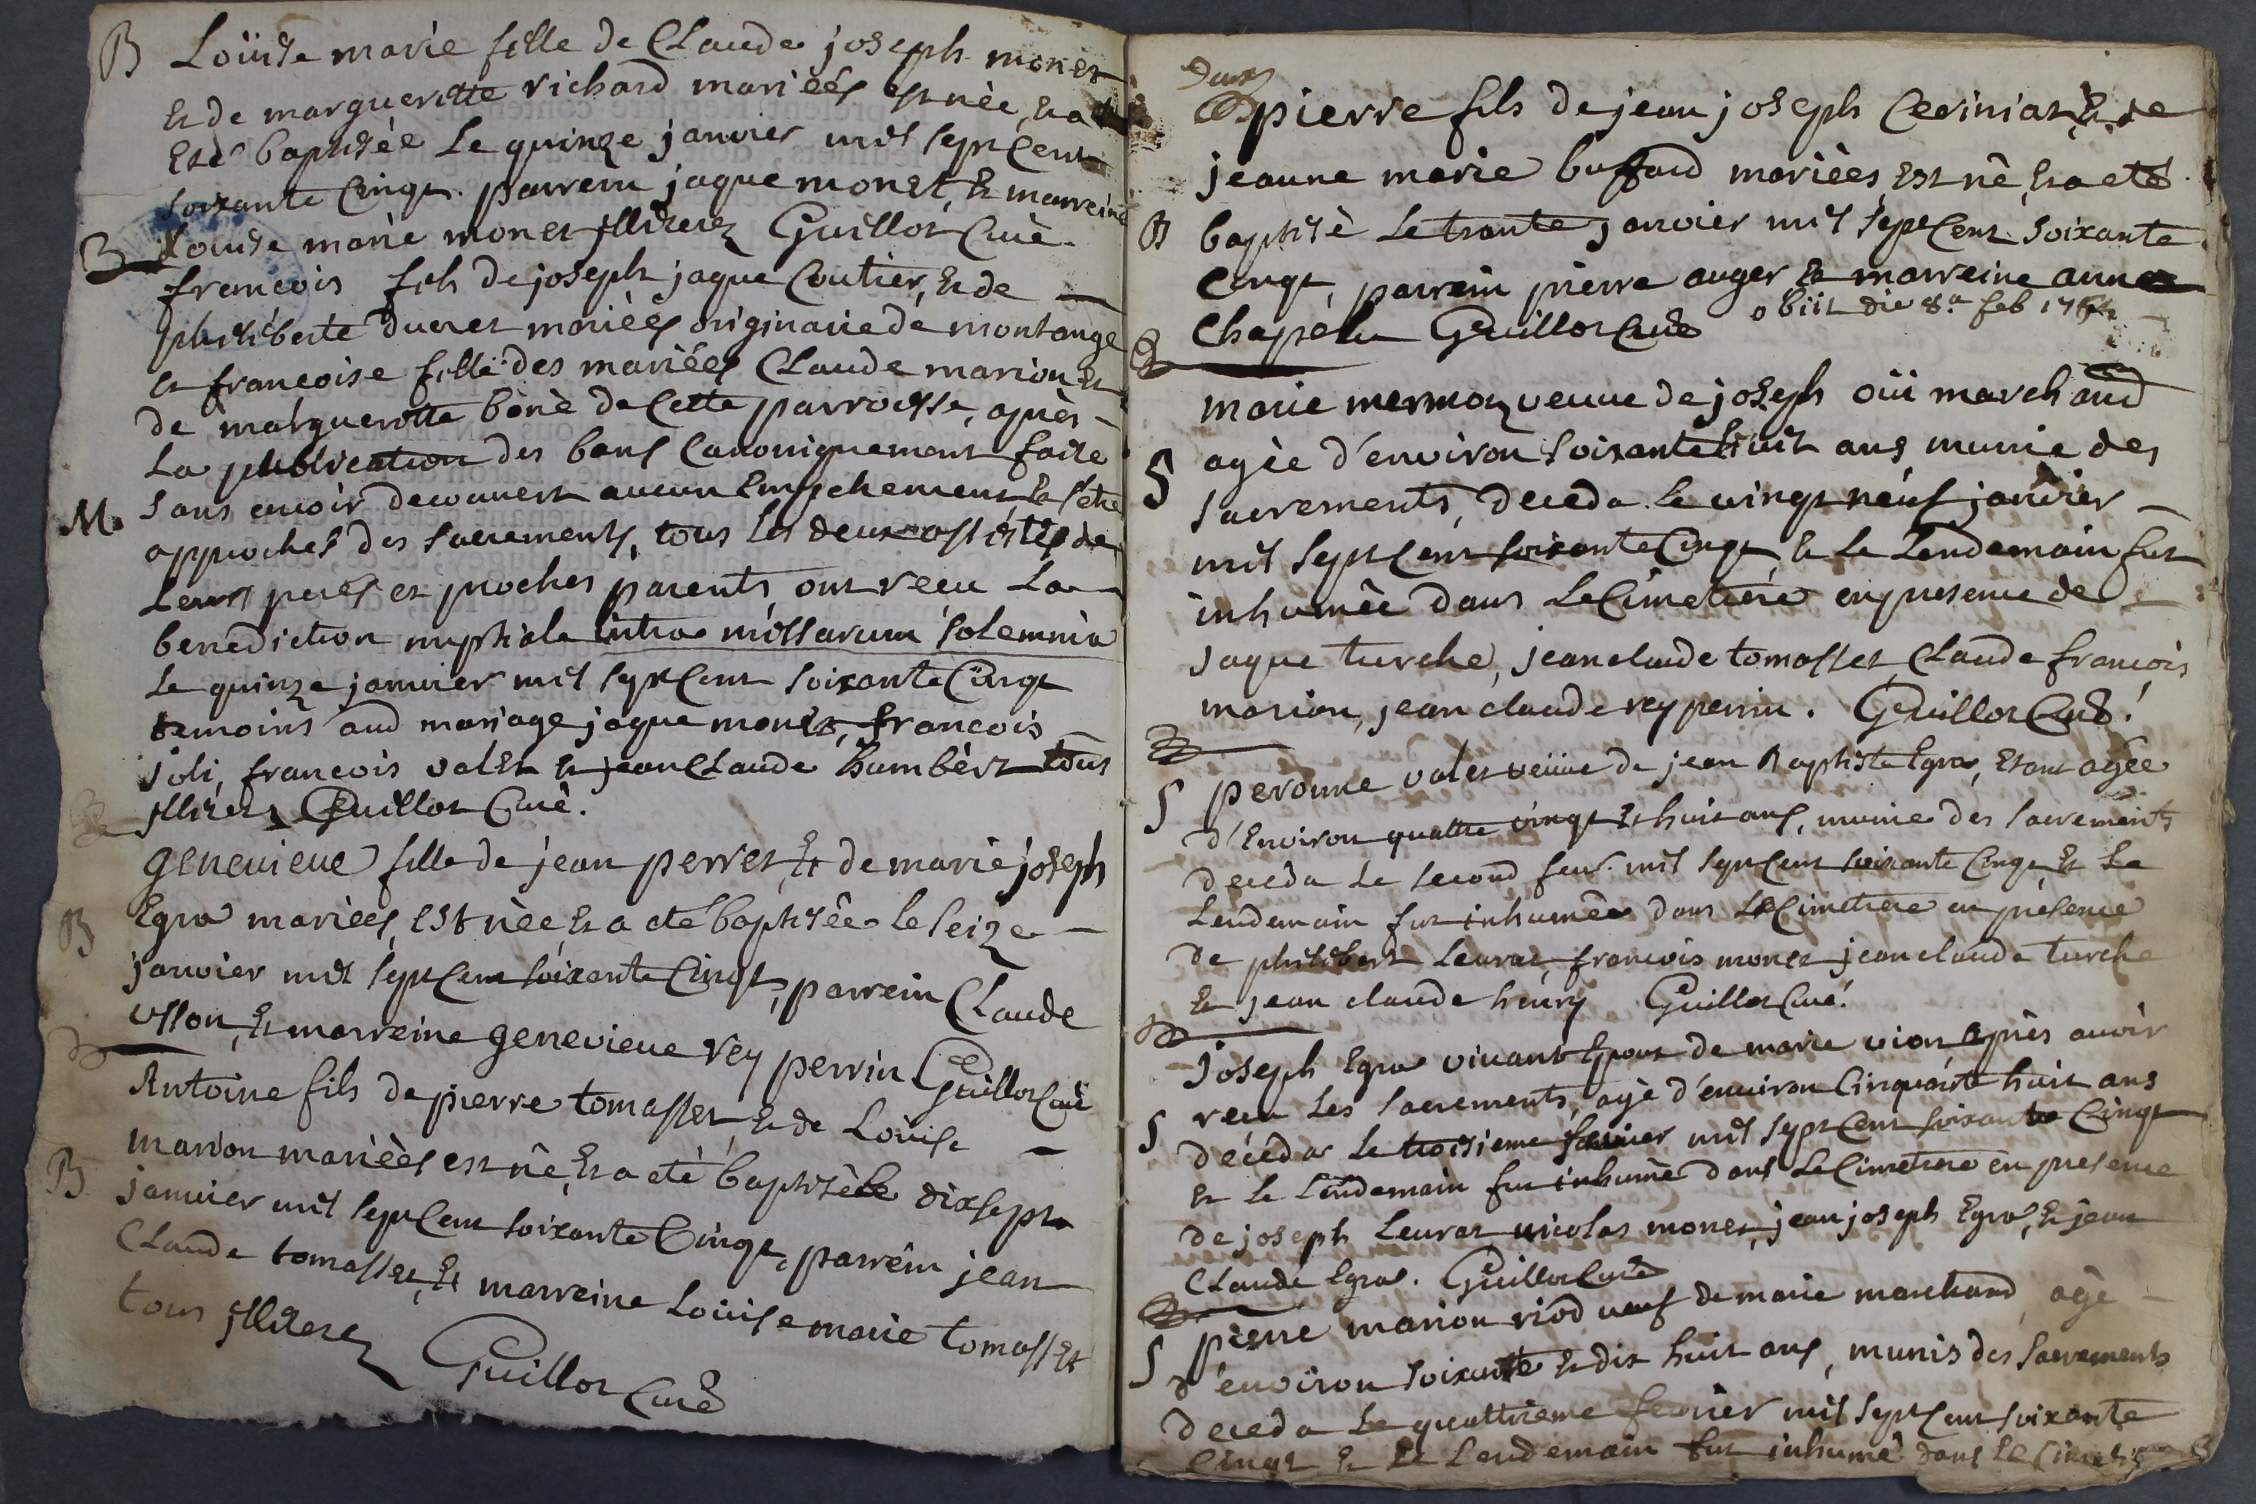 B Loüise marie fille de Claude joseph monet
Et de margueritte richard mariéés est née, Et a
Eté baptisée Le quinze janvier mil sept Cent
soixante Cinqt. parrein jaque monet, Et marreine
Louise marie monet illiterez Guillot Curé.
francois fils de joseph jaque Coutier, Et de
philiberte ducret mariéés originaire de montange
et francoise fille des mariéés Claude marion Et
de marguerotte béné de Cette parroisse, après
La publication des bans Canoniquement faite
M. sans avoir decouvert aucun Empechement, Et s'etre
approchés des sacrements, tous les deux assistés de
Leurs peres et proches parents ont recu La
benediction nuptiale intra missarum solemnia
Le quinze janvier mil sept Cent soixante Cinqt
temoins aud mariage jaque monet, francois
joli, francois valet Et jean Claude humbert tous
illiterz Guillot Curé.
genevieve fille de jean perret, Et de marie joseph
B Egra mariéés, est née, Et a eté baptisée le seize
janvier mil sept Cent soixante Cinqt, parrein Claude
usson, Et marreine genevieve rey perrin Guillot Curé
Antoine fils de pierre tomasset, Et de Loüise
marion mariéés est né, Et a eté baptisé Le dix sept
B janvier mil sept Cent soixante Cinqt, parrein jean
Claude tomasset, Et marreine Loüise marie tomasset
tous illiterez Guillot Curé
pierre fils de jean joseph Et de
jeanne marie buffard mariéés Est né, Et a eté
B baptisé Le trante janvier mil sept Cent soixante
Cinqt, parrein pierre auger Et marreine anne
Chapelu Guillot Curé obiit die 8.a feb
marie mermoz veuve de joseph oüi marchand
S agée d'environ soixante huit ans munie des
sacrements, deceda le vingt neuf janvier
mil sept Cent soixante Cinqt, Et le Lendemain fut
inhumée dans Le Cimetiére en presence de
jaque turche, jean claude tomasset, Claude francois
marion, jean claude rey perrin. Guillot Curé.
S peronne valet veüve de jean Baptiste Egra, Etant agée
d'Environ quattre vingt Et huit ans, munie des sacrements
deceda Le second fevr. mil sept Cent soixante Cinqt, Et Le
Lendemain fut inhumée dans Le Cimetiere en presence
de philibert Leurat, francois monet jean claude turche
Et jean claude henry Guillot Curé.
joseph Egra vivant Epoux de marie vion après avoir
recu Les sacrements, agé d'environ Cinquante huit ans
S déceda Le troisieme fevrier mil sept Cent soixante Cinqt
Et Le Lendemain fut inhumé dans Le Cimetiere en presence
de joseph Leurat nicolas monet, jean joseph Egra, Et jean
Claude Egra. Guillot Curé
S pierre marion riod veuf de marie marchand, agé
d'environ soixante Et dix huit ans, munis des sacrements
deceda Le quattrieme fevrier mil sept Cent soixante
Cinqt Et Le Lendemain fut inhumé dans Le